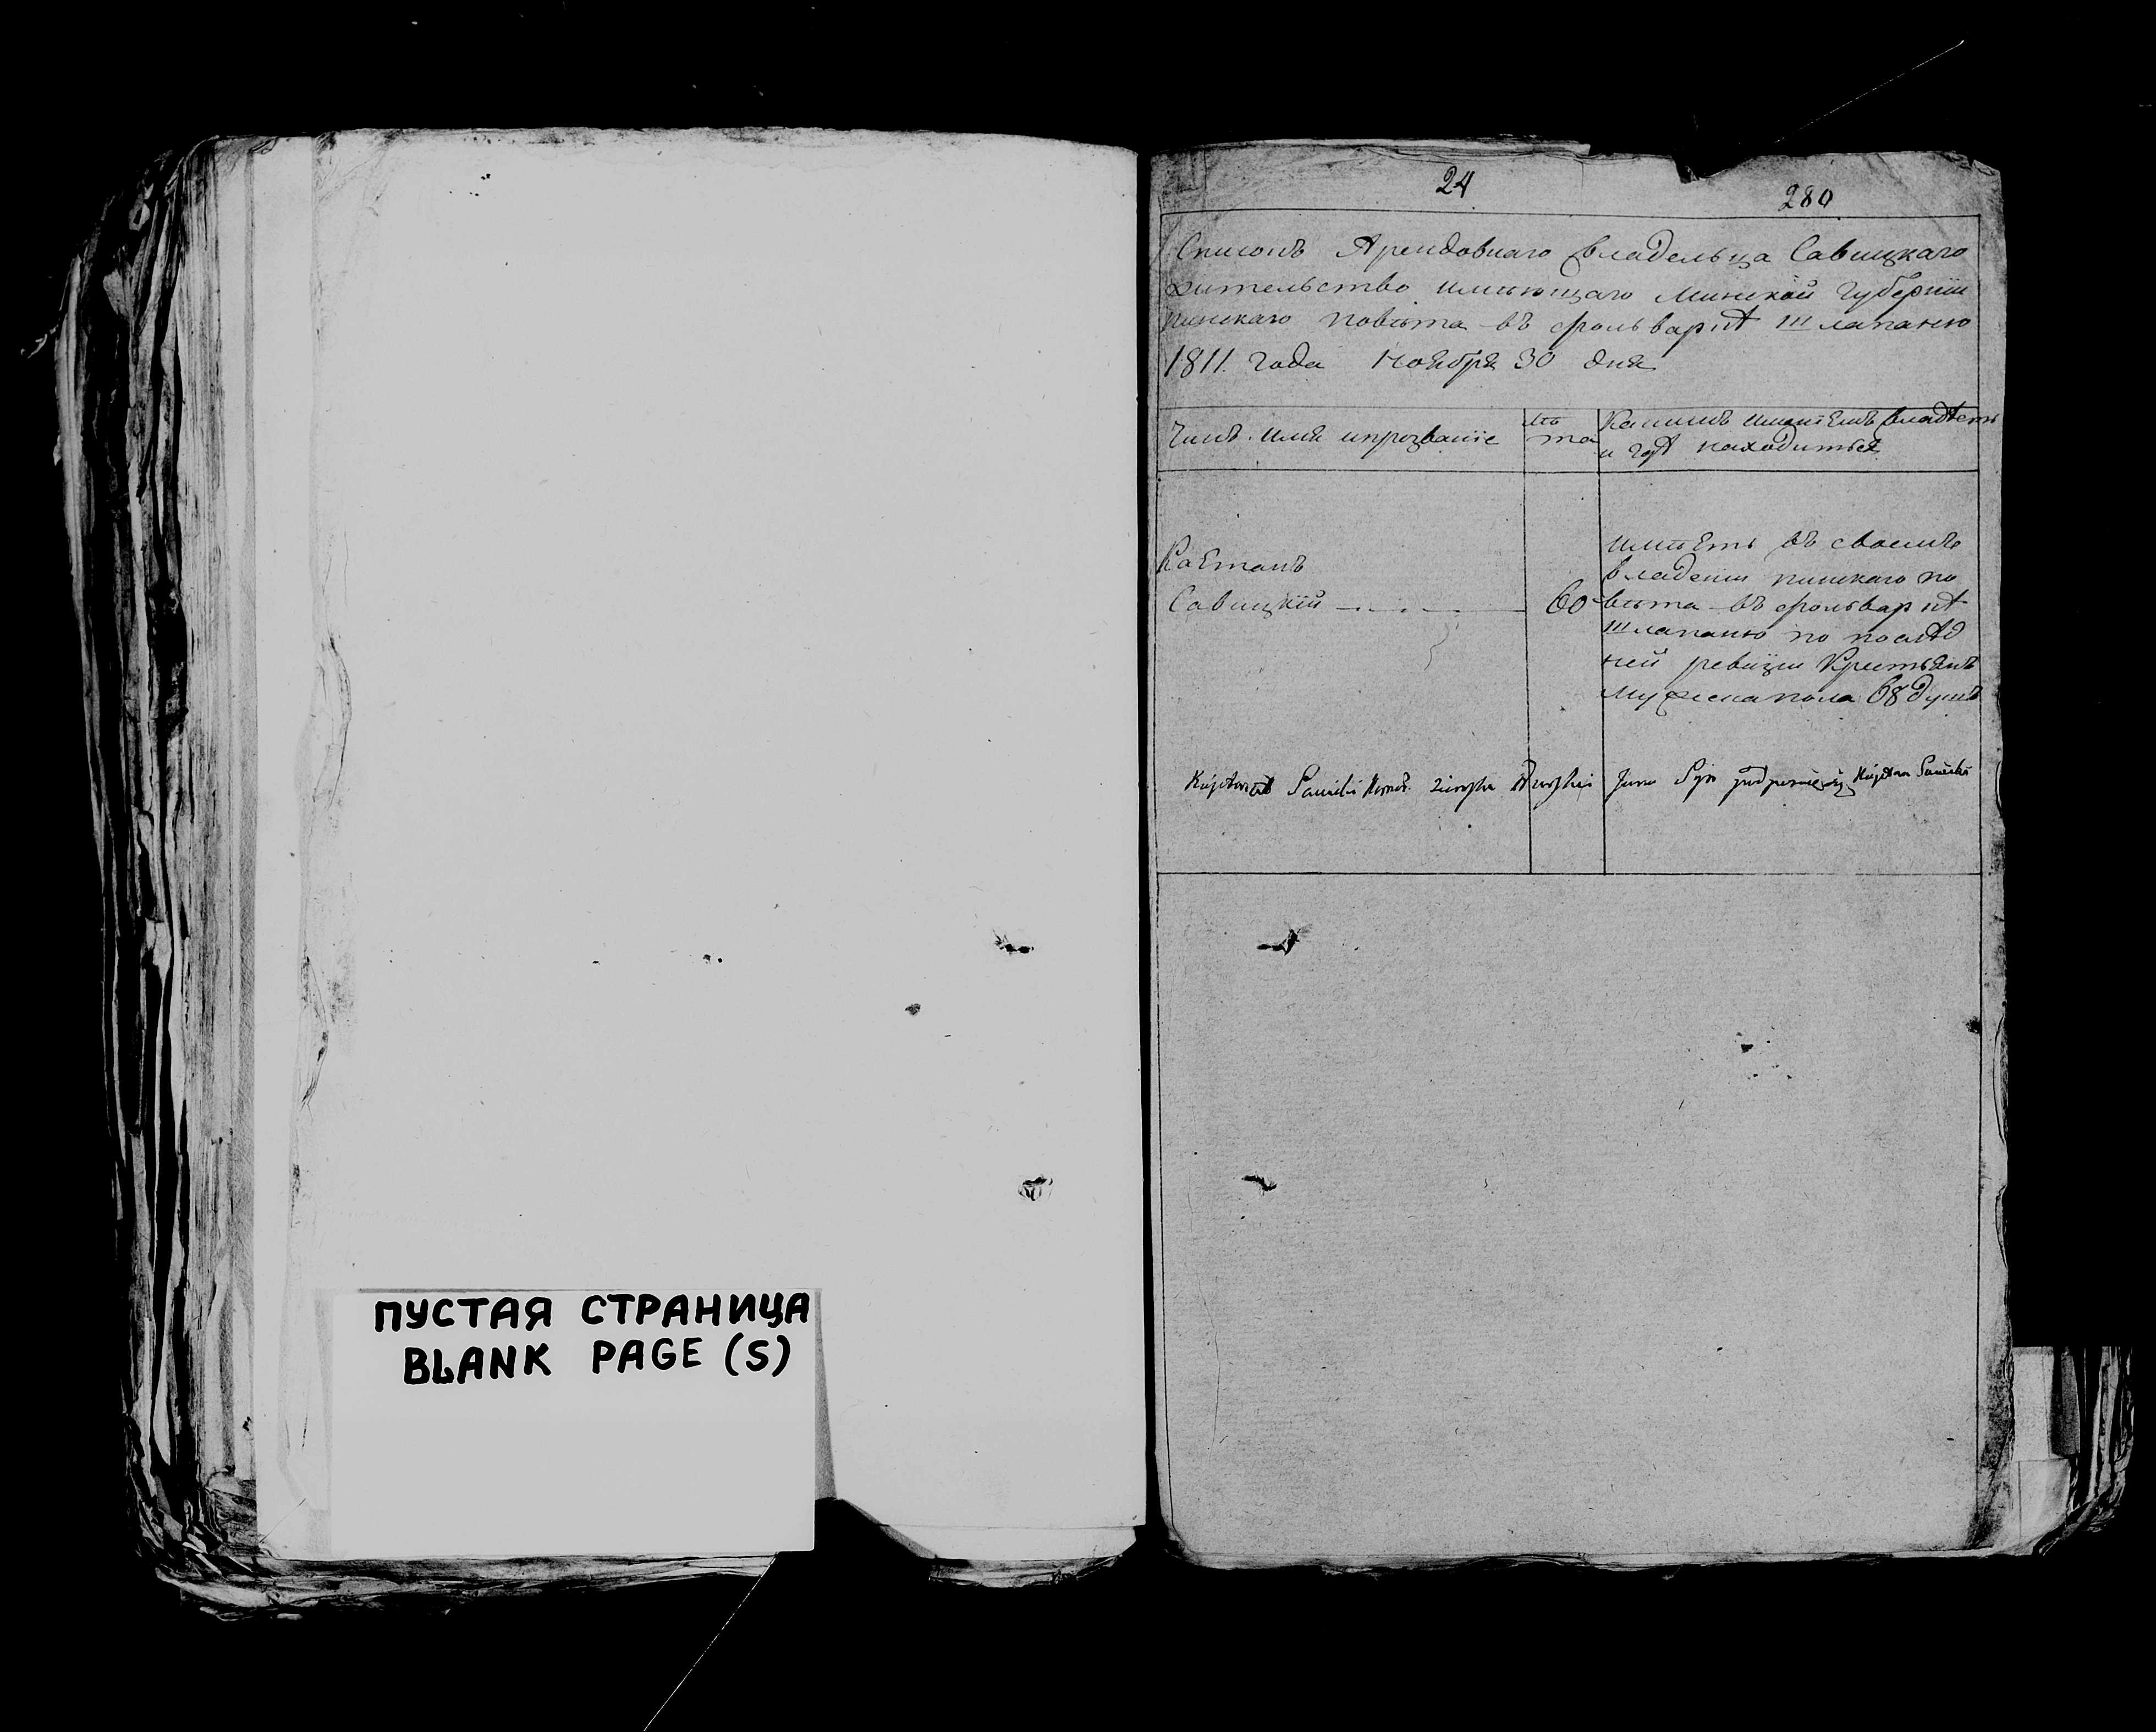 ПУСТАЯ СТРАНИЦА
BLANK PAGE (S)
24
280
Списокъ Арендовнаго владельца Савицкаго
жительство имеющаго Минской Губернiи
пинскаго повѣта въ фольваркѣ Шлапаню
1811 года Ноября 30 дня
Чинъ. имя ипрозванiе
лѣта
Какимъ имѣнiЕмъ владѣетъ
и гдѣ находиться
КаЕтанъ
Савицкiй
60
имѣЕтъ въ своемъ
владенiи пинскаго по
вѣта въ фольваркѣ
Шлапаню по послѣд
ней ревизiи Крестьянъ
мужеска пола 68 душъ
Kajetan Sawicki
Syn podpisuję Kajetan Sawicki